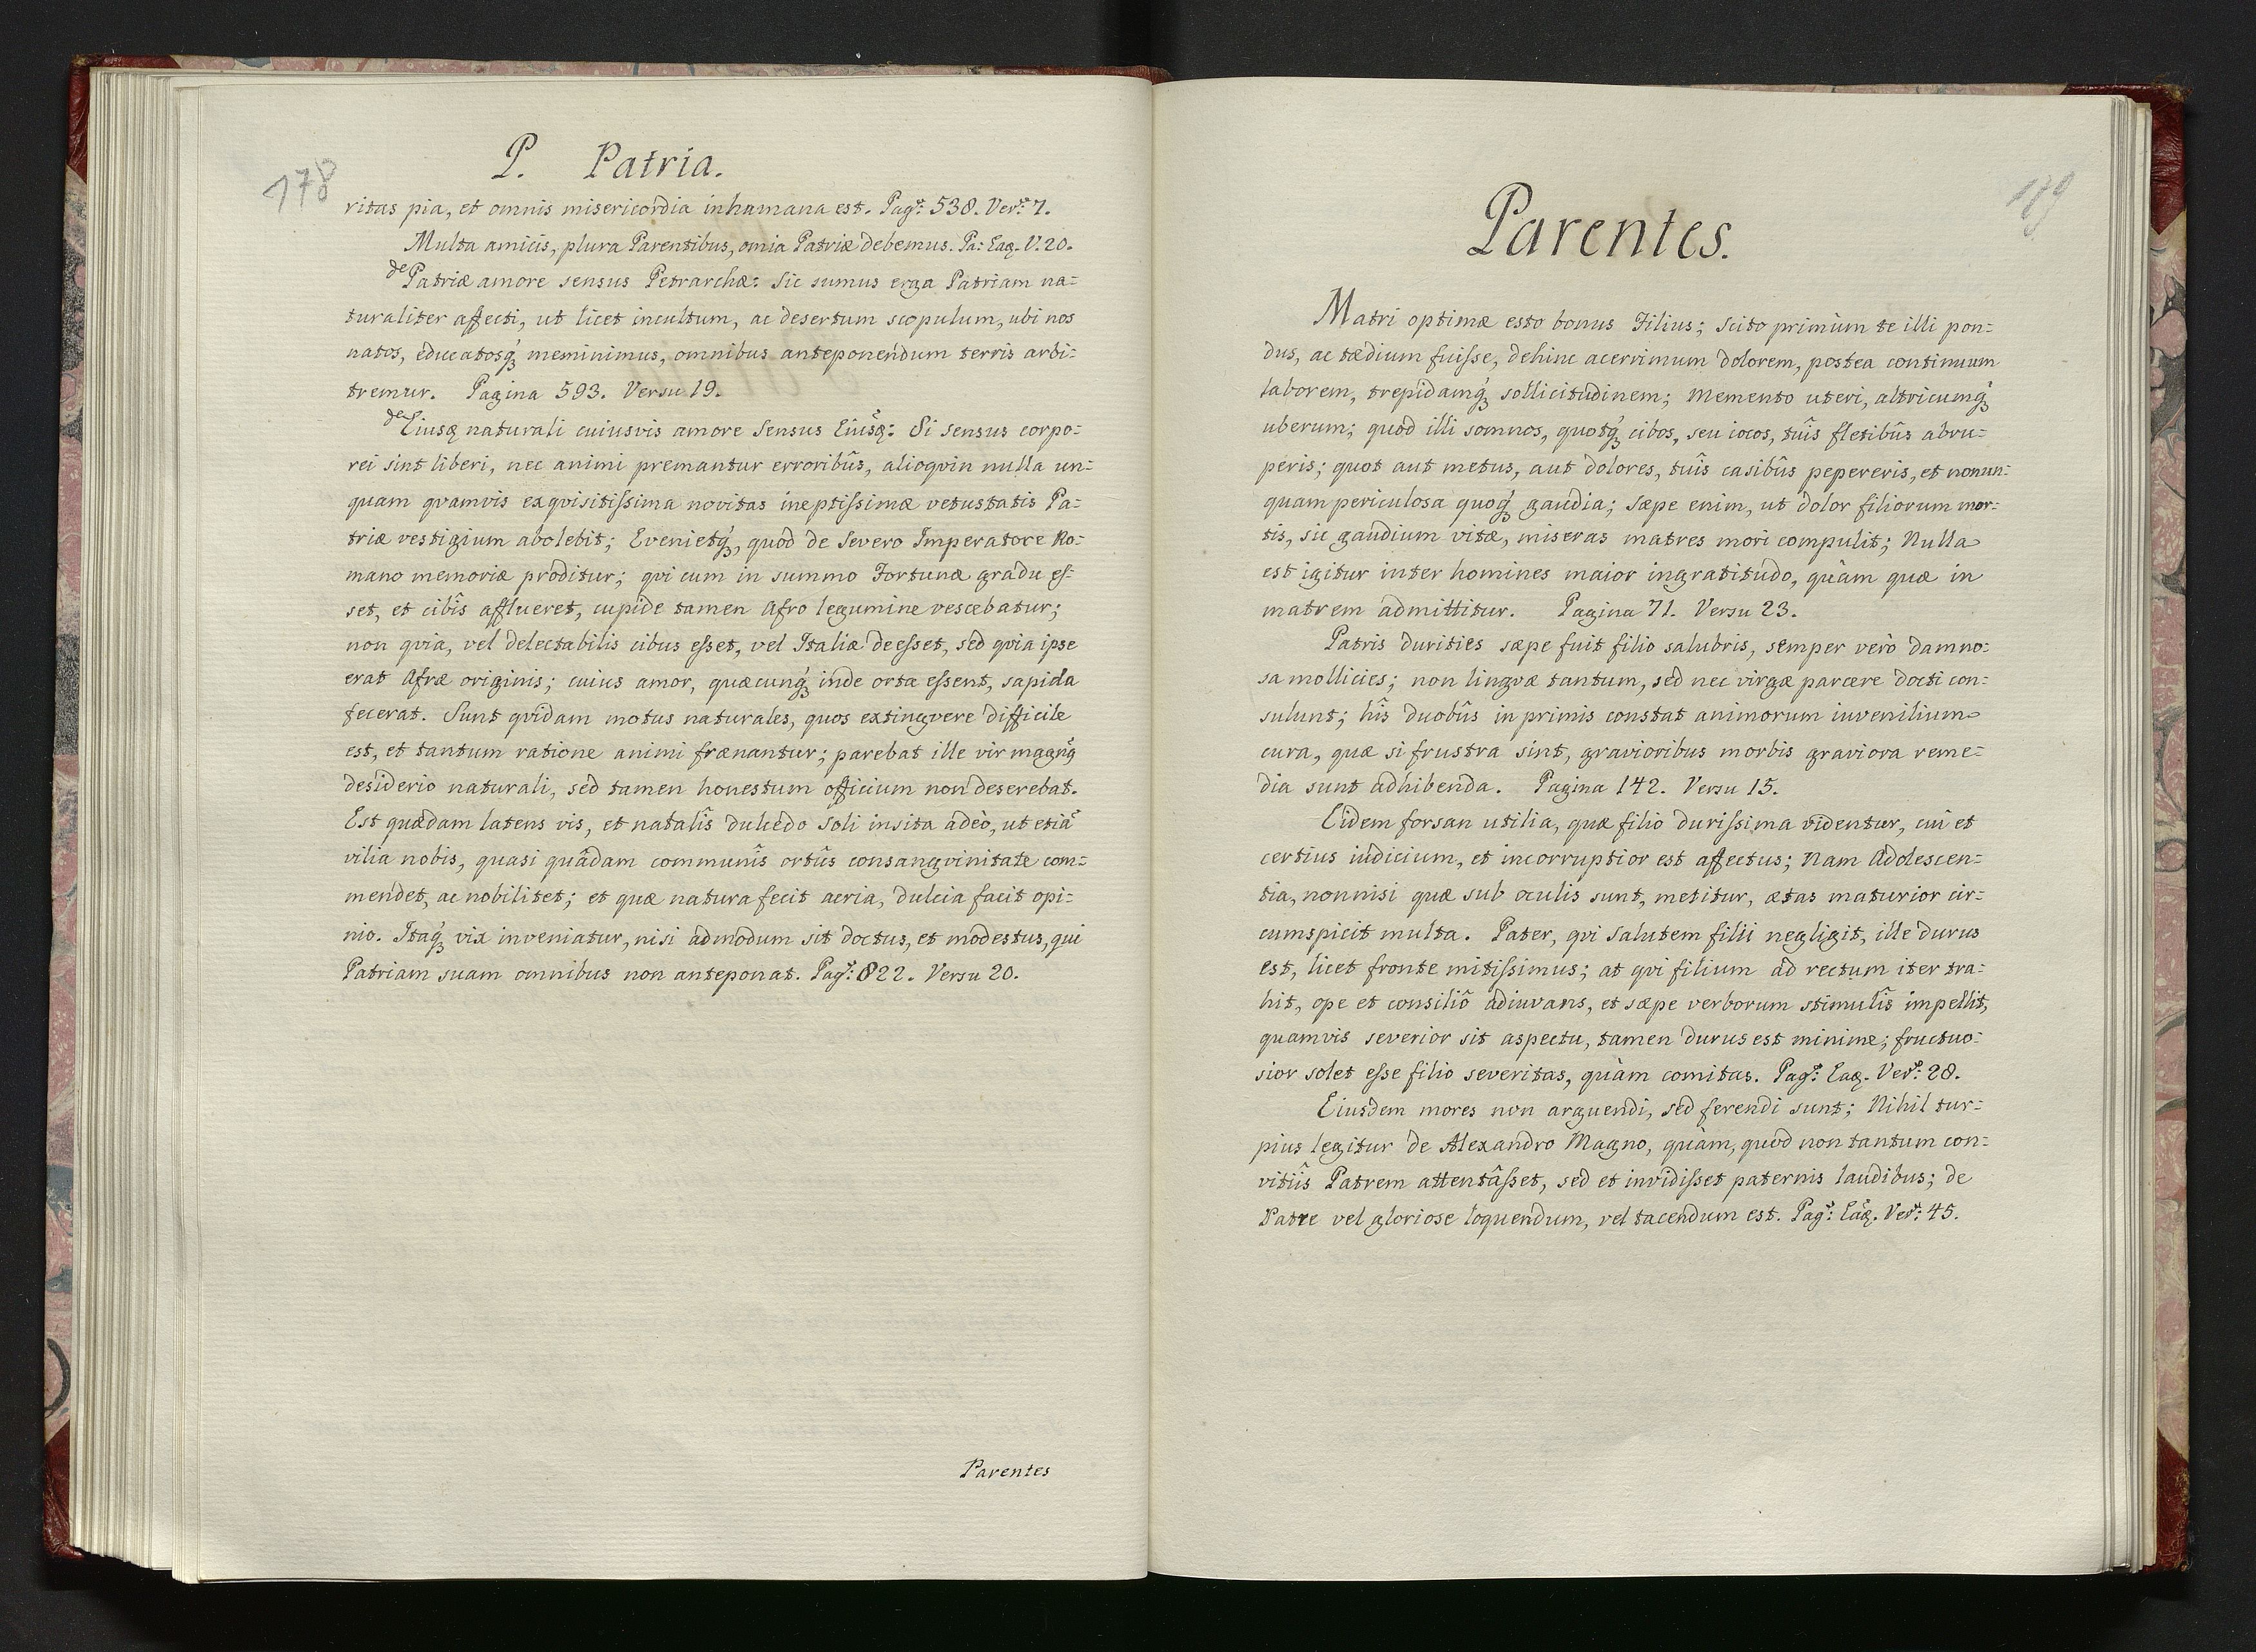 178
P. Patria.
ritas pia, et omnis misericordia inhamana est. Pagᵃ: 538. Verˢ: 7.
Multa amicis, plura Parentibus, omia Patriæ debemus. Pa: Eaq. V. 20.
de Patriæ amore sensus Petrarchæ: Sic sumus erga Patriam na=
turaliter affecti, ut licet incultum, ac desertum scopulum, ubi nos
natos, educatosq́ʒ meminimus, omnibus anteponendum terris arbi=
tremur. Pagina 593. Versu 19.
de Eiusq naturali cuiusvis amore Sensus Eiusq: Si sensus corpo=
rei sint liberi, nec animi premantur erroribûs, alioqvin nulla un=
quam qvamvis exqvisitiſsima novitas ineptiſsimæ vetustatis Pa=
triæ vestigium abolebit; Evenietq́ʒ, quod de Severo Imperatore Ro=
mano memoriæ proditur; qvi cum in summo Fortunæ gradu eſ=
set, et cibîs afflueret, cupide tamen Afro legumine vescebatur;
non qvia, vel delectabilis cibus eſset, vel Italiæ deeſset, sed qvia ipse
erat Afræ originis; cuius amor, quæcunq́ʒ inde orta eſsent, sapida
fecerat. Sunt qvidam motus naturales, quos extingvere difficile
est, et tantum ratione animi frænantur; parebat ille vir magnq
desiderio naturali, sed tamen honestum officium non deserebat.
Est quædam latens vis, et natalîs dulcedo Soli insita adeò, ut etiã
vilia nobis, quasi quâdam communîs ortûs consangvinitate com=
mendet, ac nobilitet; et quæ natura fecit acria, dulcia facit opi=
nio. Itaq́ʒ vix inveniatur, nisi admodum sit doctus, et modestus, qui
Patriam suam omnibus non anteponat. Pagᵃ: 822. Versu 20.
Parentes
189
Parentes.
Matri optimæ esto bonus Filius; Scito primùm te illi pon=
dus, ac tædium fuiſse, dehinc acerrimum dolorem, postea continuum
laborem, trepidamq́ʒ sollicitudinem; Memento uteri, altricumq́ʒ
uberum; quod illi somnos, quotq́ʒ cibos, seu iocos, tuîs fletibûs abru=
peris; quot aut metus, aut dolores, tuîs casibûs pepereris, et nonun=
quam periculosa quoq́ʒ gaudia; Sæpe enim, ut dolor filiorum mor=
tis, sic gaudium vitæ, miseras matres mori compulit; Nulla
est igitur inter homines maior ingratitudo, quàm quæ in
matrem admittitur. Pagina 71. Versu 23.
Patris durities sæpe fuit filio salubris, semper verò damno=
sa mollicies; non lingvæ tantum, sed nec virgæ parcere docti con=
sulunt; hîs duobûs in primis constat animorum iuvenilium
cura, quæ si frustra sint, gravioribus morbis graviora reme=
dia sunt adhibenda. Pagina 142. Versu 15.
Eidem forsan utilia, quæ filio duriſsima videntur, cui et
certius iudicium, et incorruptior est affectus; Nam Adolescen=
tia, nonnisi quæ sub oculis sunt, metitur, ætas maturior cir=
cumspicit multa. Pater, qvi Salutem filii negligit, ille durus
est, licet fronte mitiſsimus; at qvi filium ad rectum iter tra=
hit, ope et consiliô adiuvans, et sæpe verborum stimulîs impellit,
quamvis severior sit aspectu, tamen durus est minime; fructuo=
sior solet eſse filio severitas, quàm comitas. Pagᵃ: Eaq. Verˢ: 28.
Eiusdem mores non arguendi, sed ferendi sunt; Nihil tur=
pius legitur de Alexandro Magno, quàm, quod non tantum con=
vitiîs Patrem attentâſset, sed et invidiſset paternis laudibus; de
Patre vel gloriose loquendum, vel tacendum est. Pagᵃ: Eaq. Verˢ: 45.